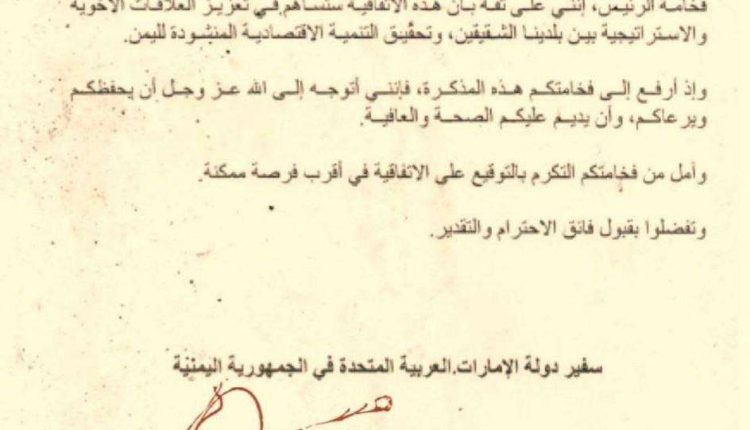 فخامة الرئيس، إنني على ثقة بأن هذه الاتفاقية ستساهم في تعزيز العلاقات الأخوية
والاستراتيجية بين بلدينا الشقيقين، وتحقيق التنمية الاقتصادية المنشودة لليمن.
وإذ أرفع إلى فخامتكم هذه المذكرة، فإنني أتوجه إلى الله عز وجل أن يحفظكم
ويرعاكم، وأن يديم عليكم الصحة والعافية.
وأمل من فخامتكم التكرم بالتوقيع على الاتفاقية في أقرب فرصة ممكنة.
وتفضلوا بقبول فائق الاحترام والتقدير.
سفير دولة الإمارات العربية المتحدة في الجمهورية اليمنية